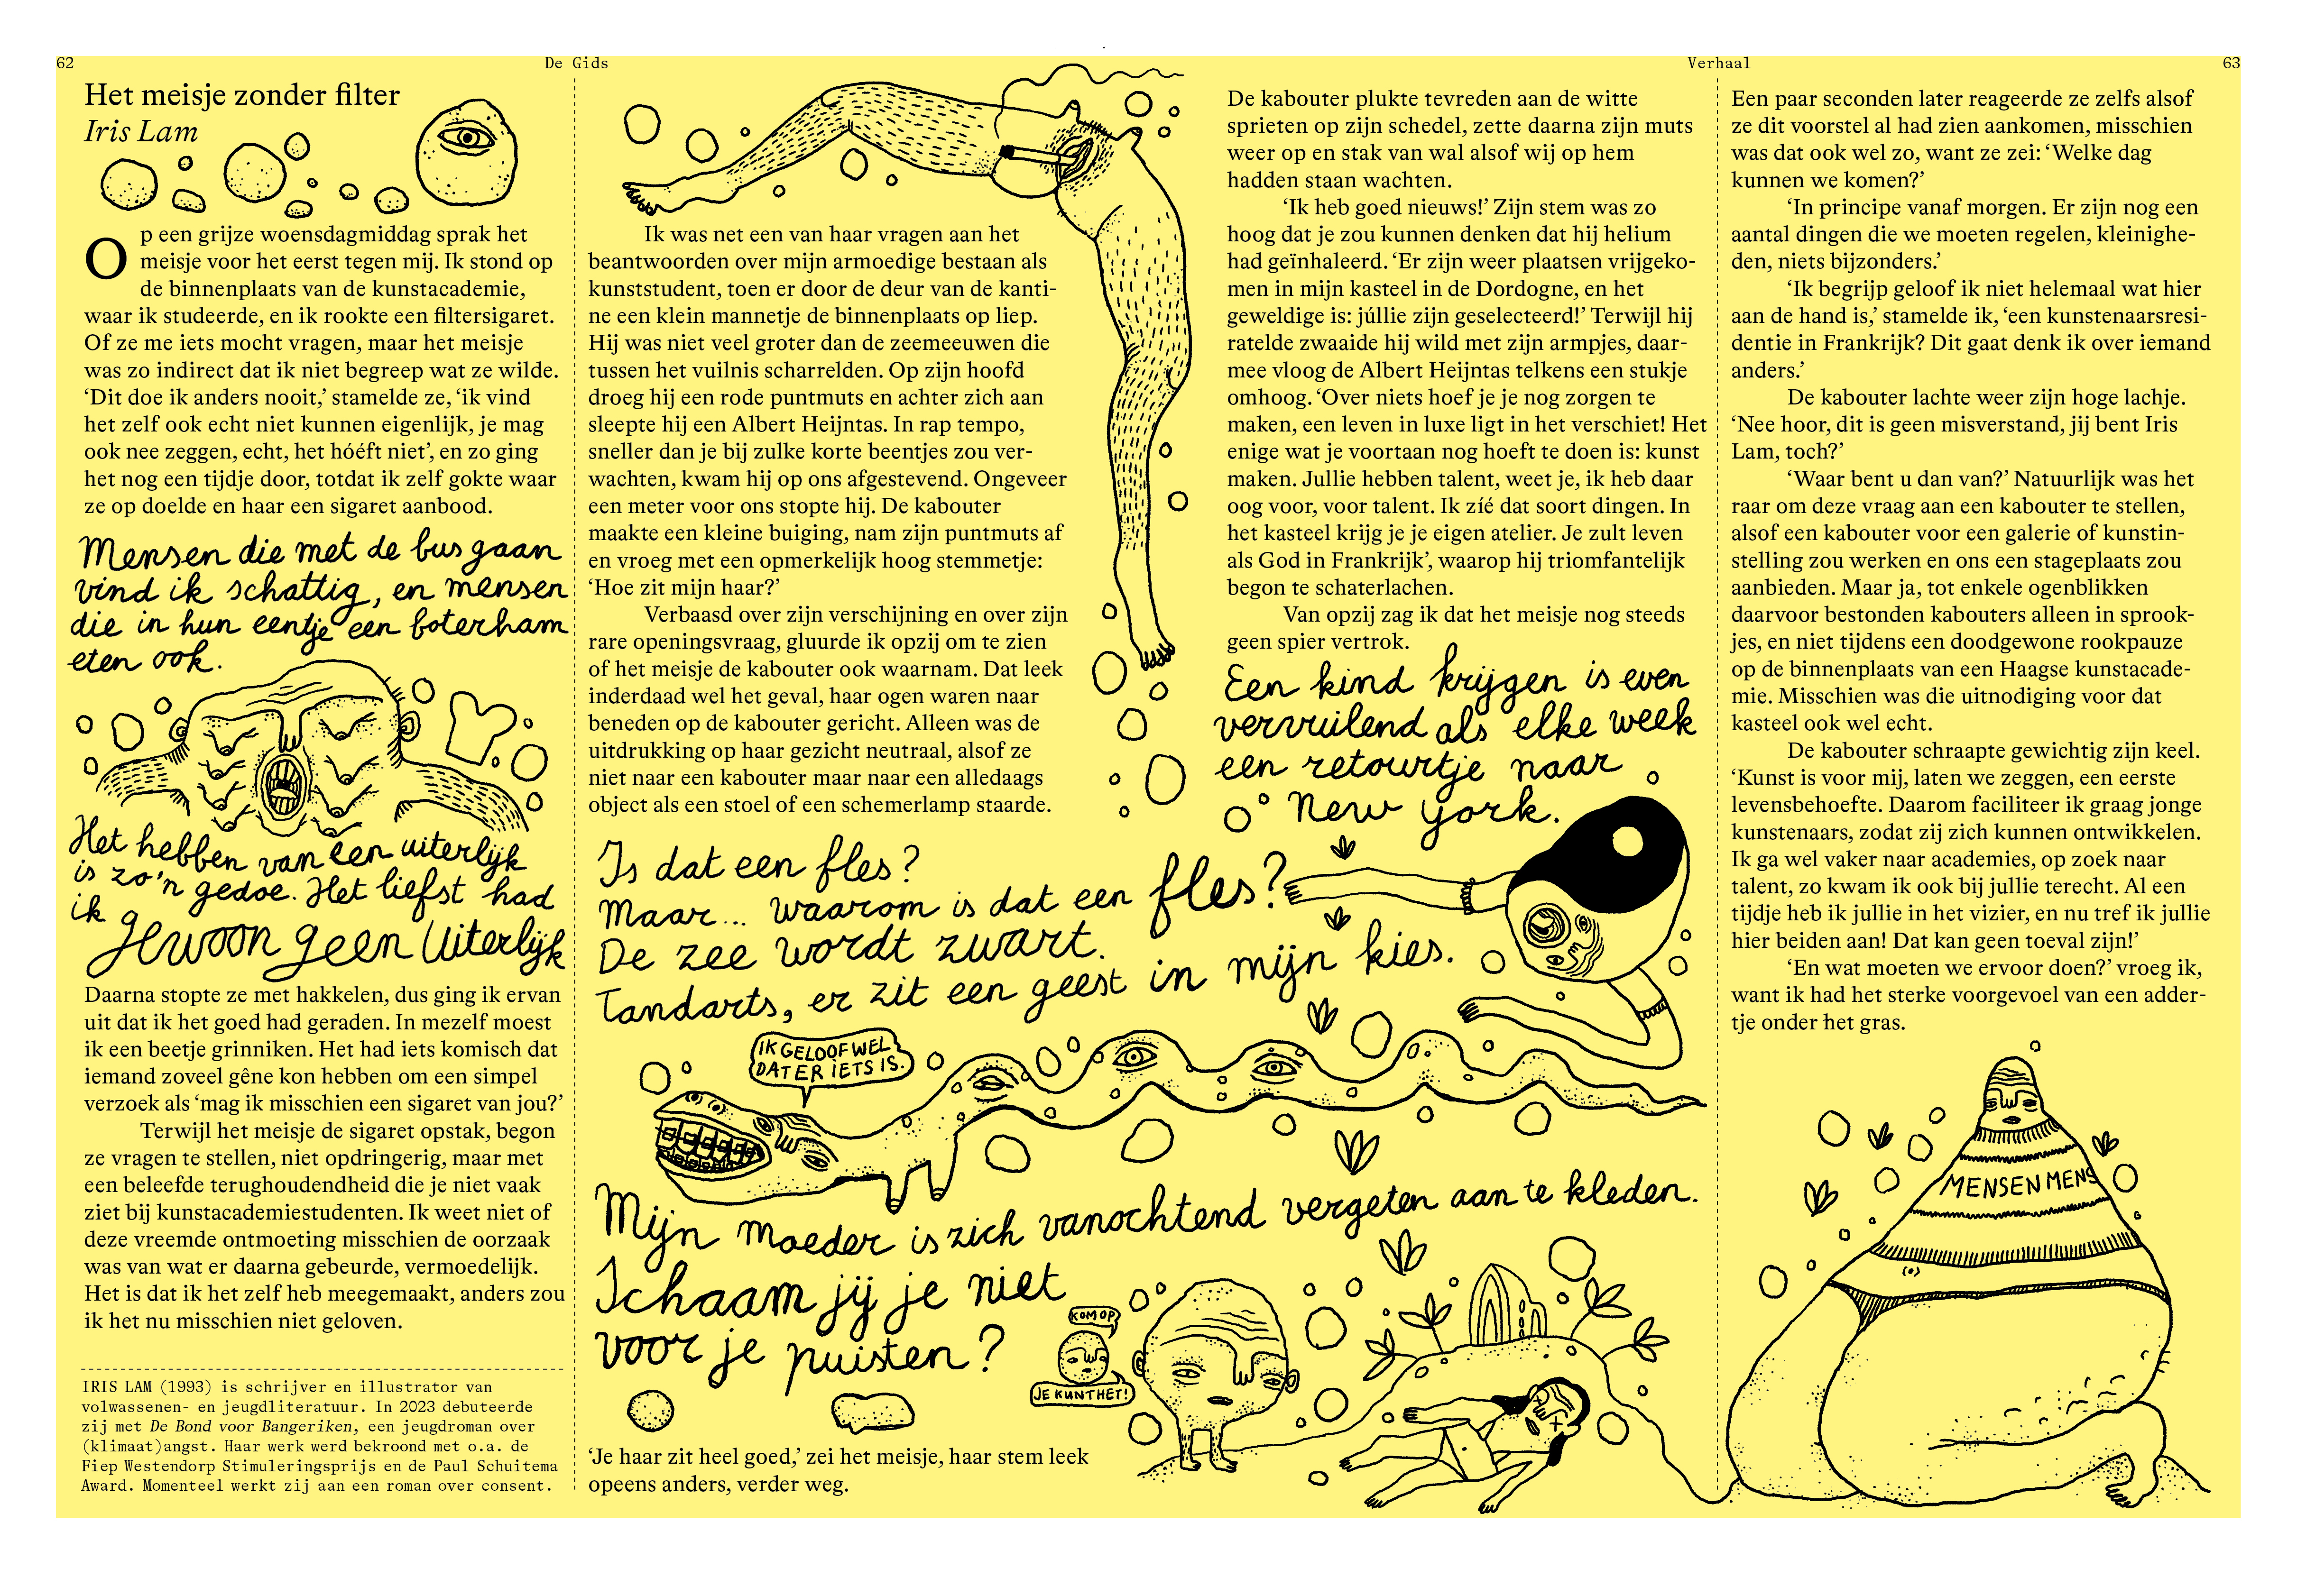 62
De Gids
Verhaal
63
Het meisje zonder filter
Iris Lam
Op een grijze woensdagmiddag sprak het
meisje voor het eerst tegen mij. Ik stond op
de binnenplaats van de kunstacademie,
waar ik studeerde, en ik rookte een filtersigaret.
Of ze me iets mocht vragen, maar het meisje
was zo indirect dat ik niet begreep wat ze wilde.
‘Dit doe ik anders nooit,’ stamelde ze, ‘ik vind
het zelf ook echt niet kunnen eigenlijk, je mag
ook nee zeggen, echt, het hóéft niet’, en zo ging
het nog een tijdje door, totdat ik zelf gokte waar
ze op doelde en haar een sigaret aanbood.
Mensen die met de bus gaan
vind ik schattig, en mensen
die in hun eentje een boterham
eten ook.
Het hebben van een uiterlijk
is zo'n gedoe. Het liefst had
ik
Gewoon geen Uiterlijk
Daarna stopte ze met hakkelen, dus ging ik ervan
uit dat ik het goed had geraden. In mezelf moest
ik een beetje grinniken. Het had iets komisch dat
iemand zoveel gêne kon hebben om een simpel
verzoek als ‘mag ik misschien een sigaret van jou?’
Terwijl het meisje de sigaret opstak, begon
ze vragen te stellen, niet opdringerig, maar met
een beleefde terughoudendheid die je niet vaak
ziet bij kunstacademiestudenten. Ik weet niet of
deze vreemde ontmoeting misschien de oorzaak
was van wat er daarna gebeurde, vermoedelijk.
Het is dat ik het zelf heb meegemaakt, anders zou
ik het nu misschien niet geloven.
IRIS LAM (1993) is schrijver en illustrator van
volwassenen- en jeugdliteratuur. In 2023 debuteerde
zij met De Bond voor Bangeriken, een jeugdroman over
(klimaat)angst. Haar werk werd bekroond met o.a. de
Fiep Westendorp Stimuleringsprijs en de Paul Schuitema
Award. Momenteel werkt zij aan een roman over consent.
Ik was net een van haar vragen aan het
beantwoorden over mijn armoedige bestaan als
kunststudent, toen er door de deur van de kanti-
ne een klein mannetje de binnenplaats op liep.
Hij was niet veel groter dan de zeemeeuwen die
tussen het vuilnis scharrelden. Op zijn hoofd
droeg hij een rode puntmuts en achter zich aan
sleepte hij een Albert Heijntas. In rap tempo,
sneller dan je bij zulke korte beentjes zou ver-
wachten, kwam hij op ons afgestevend. Ongeveer
een meter voor ons stopte hij. De kabouter
maakte een kleine buiging, nam zijn puntmuts af
en vroeg met een opmerkelijk hoog stemmetje:
‘Hoe zit mijn haar?’
Verbaasd over zijn verschijning en over zijn
rare openingsvraag, gluurde ik opzij om te zien
of het meisje de kabouter ook waarnam. Dat leek
inderdaad wel het geval, haar ogen waren naar
beneden op de kabouter gericht. Alleen was de
uitdrukking op haar gezicht neutraal, alsof ze
niet naar een kabouter maar naar een alledaags
object als een stoel of een schemerlamp staarde.
Is dat een fles?
Maar... waarom is dat een fles?
De zee wordt zwart.
Tandarts, er zit een geest in mijn kies.
IK GELOOF WEL
DAT ER IETS IS.
Mijn moeder is zich vanochtend vergeten aan te kleden.
Schaam jij je niet
voor je puisten?
KOM OP
JE KUNT HET!
‘Je haar zit heel goed,’ zei het meisje, haar stem leek
opeens anders, verder weg.
De kabouter plukte tevreden aan de witte
sprieten op zijn schedel, zette daarna zijn muts
weer op en stak van wal alsof wij op hem
hadden staan wachten.
‘Ik heb goed nieuws!’ Zijn stem was zo
hoog dat je zou kunnen denken dat hij helium
had geïnhaleerd. ‘Er zijn weer plaatsen vrijgeko-
men in mijn kasteel in de Dordogne, en het
geweldige is: júllie zijn geselecteerd!’ Terwijl hij
ratelde zwaaide hij wild met zijn armpjes, daar-
mee vloog de Albert Heijntas telkens een stukje
omhoog. ‘Over niets hoef je je nog zorgen te
maken, een leven in luxe ligt in het verschiet! Het
enige wat je voortaan nog hoeft te doen is: kunst
maken. Jullie hebben talent, weet je, ik heb daar
oog voor, voor talent. Ik zíé dat soort dingen. In
het kasteel krijg je je eigen atelier. Je zult leven
als God in Frankrijk’, waarop hij triomfantelijk
begon te schaterlachen.
Van opzij zag ik dat het meisje nog steeds
geen spier vertrok.
Een kind krijgen is even
vervuilend als elke week
een retourtje naar
New York.
Een paar seconden later reageerde ze zelfs alsof
ze dit voorstel al had zien aankomen, misschien
was dat ook wel zo, want ze zei: ‘Welke dag
kunnen we komen?’
‘In principe vanaf morgen. Er zijn nog een
aantal dingen die we moeten regelen, kleinighe-
den, niets bijzonders.’
‘Ik begrijp geloof ik niet helemaal wat hier
aan de hand is,’ stamelde ik, ‘een kunstenaarsresi-
dentie in Frankrijk? Dit gaat denk ik over iemand
anders.’
De kabouter lachte weer zijn hoge lachje.
‘Nee hoor, dit is geen misverstand, jij bent Iris
Lam, toch?’
‘Waar bent u dan van?’ Natuurlijk was het
raar om deze vraag aan een kabouter te stellen,
alsof een kabouter voor een galerie of kunstin-
stelling zou werken en ons een stageplaats zou
aanbieden. Maar ja, tot enkele ogenblikken
daarvoor bestonden kabouters alleen in sprook-
jes, en niet tijdens een doodgewone rookpauze
op de binnenplaats van een Haagse kunstacade-
mie. Misschien was die uitnodiging voor dat
kasteel ook wel echt.
De kabouter schraapte gewichtig zijn keel.
‘Kunst is voor mij, laten we zeggen, een eerste
levensbehoefte. Daarom faciliteer ik graag jonge
kunstenaars, zodat zij zich kunnen ontwikkelen.
Ik ga wel vaker naar academies, op zoek naar
talent, zo kwam ik ook bij jullie terecht. Al een
tijdje heb ik jullie in het vizier, en nu tref ik jullie
hier beiden aan! Dat kan geen toeval zijn!’
‘En wat moeten we ervoor doen?’ vroeg ik,
want ik had het sterke voorgevoel van een adder-
tje onder het gras.
MENSEN MENS